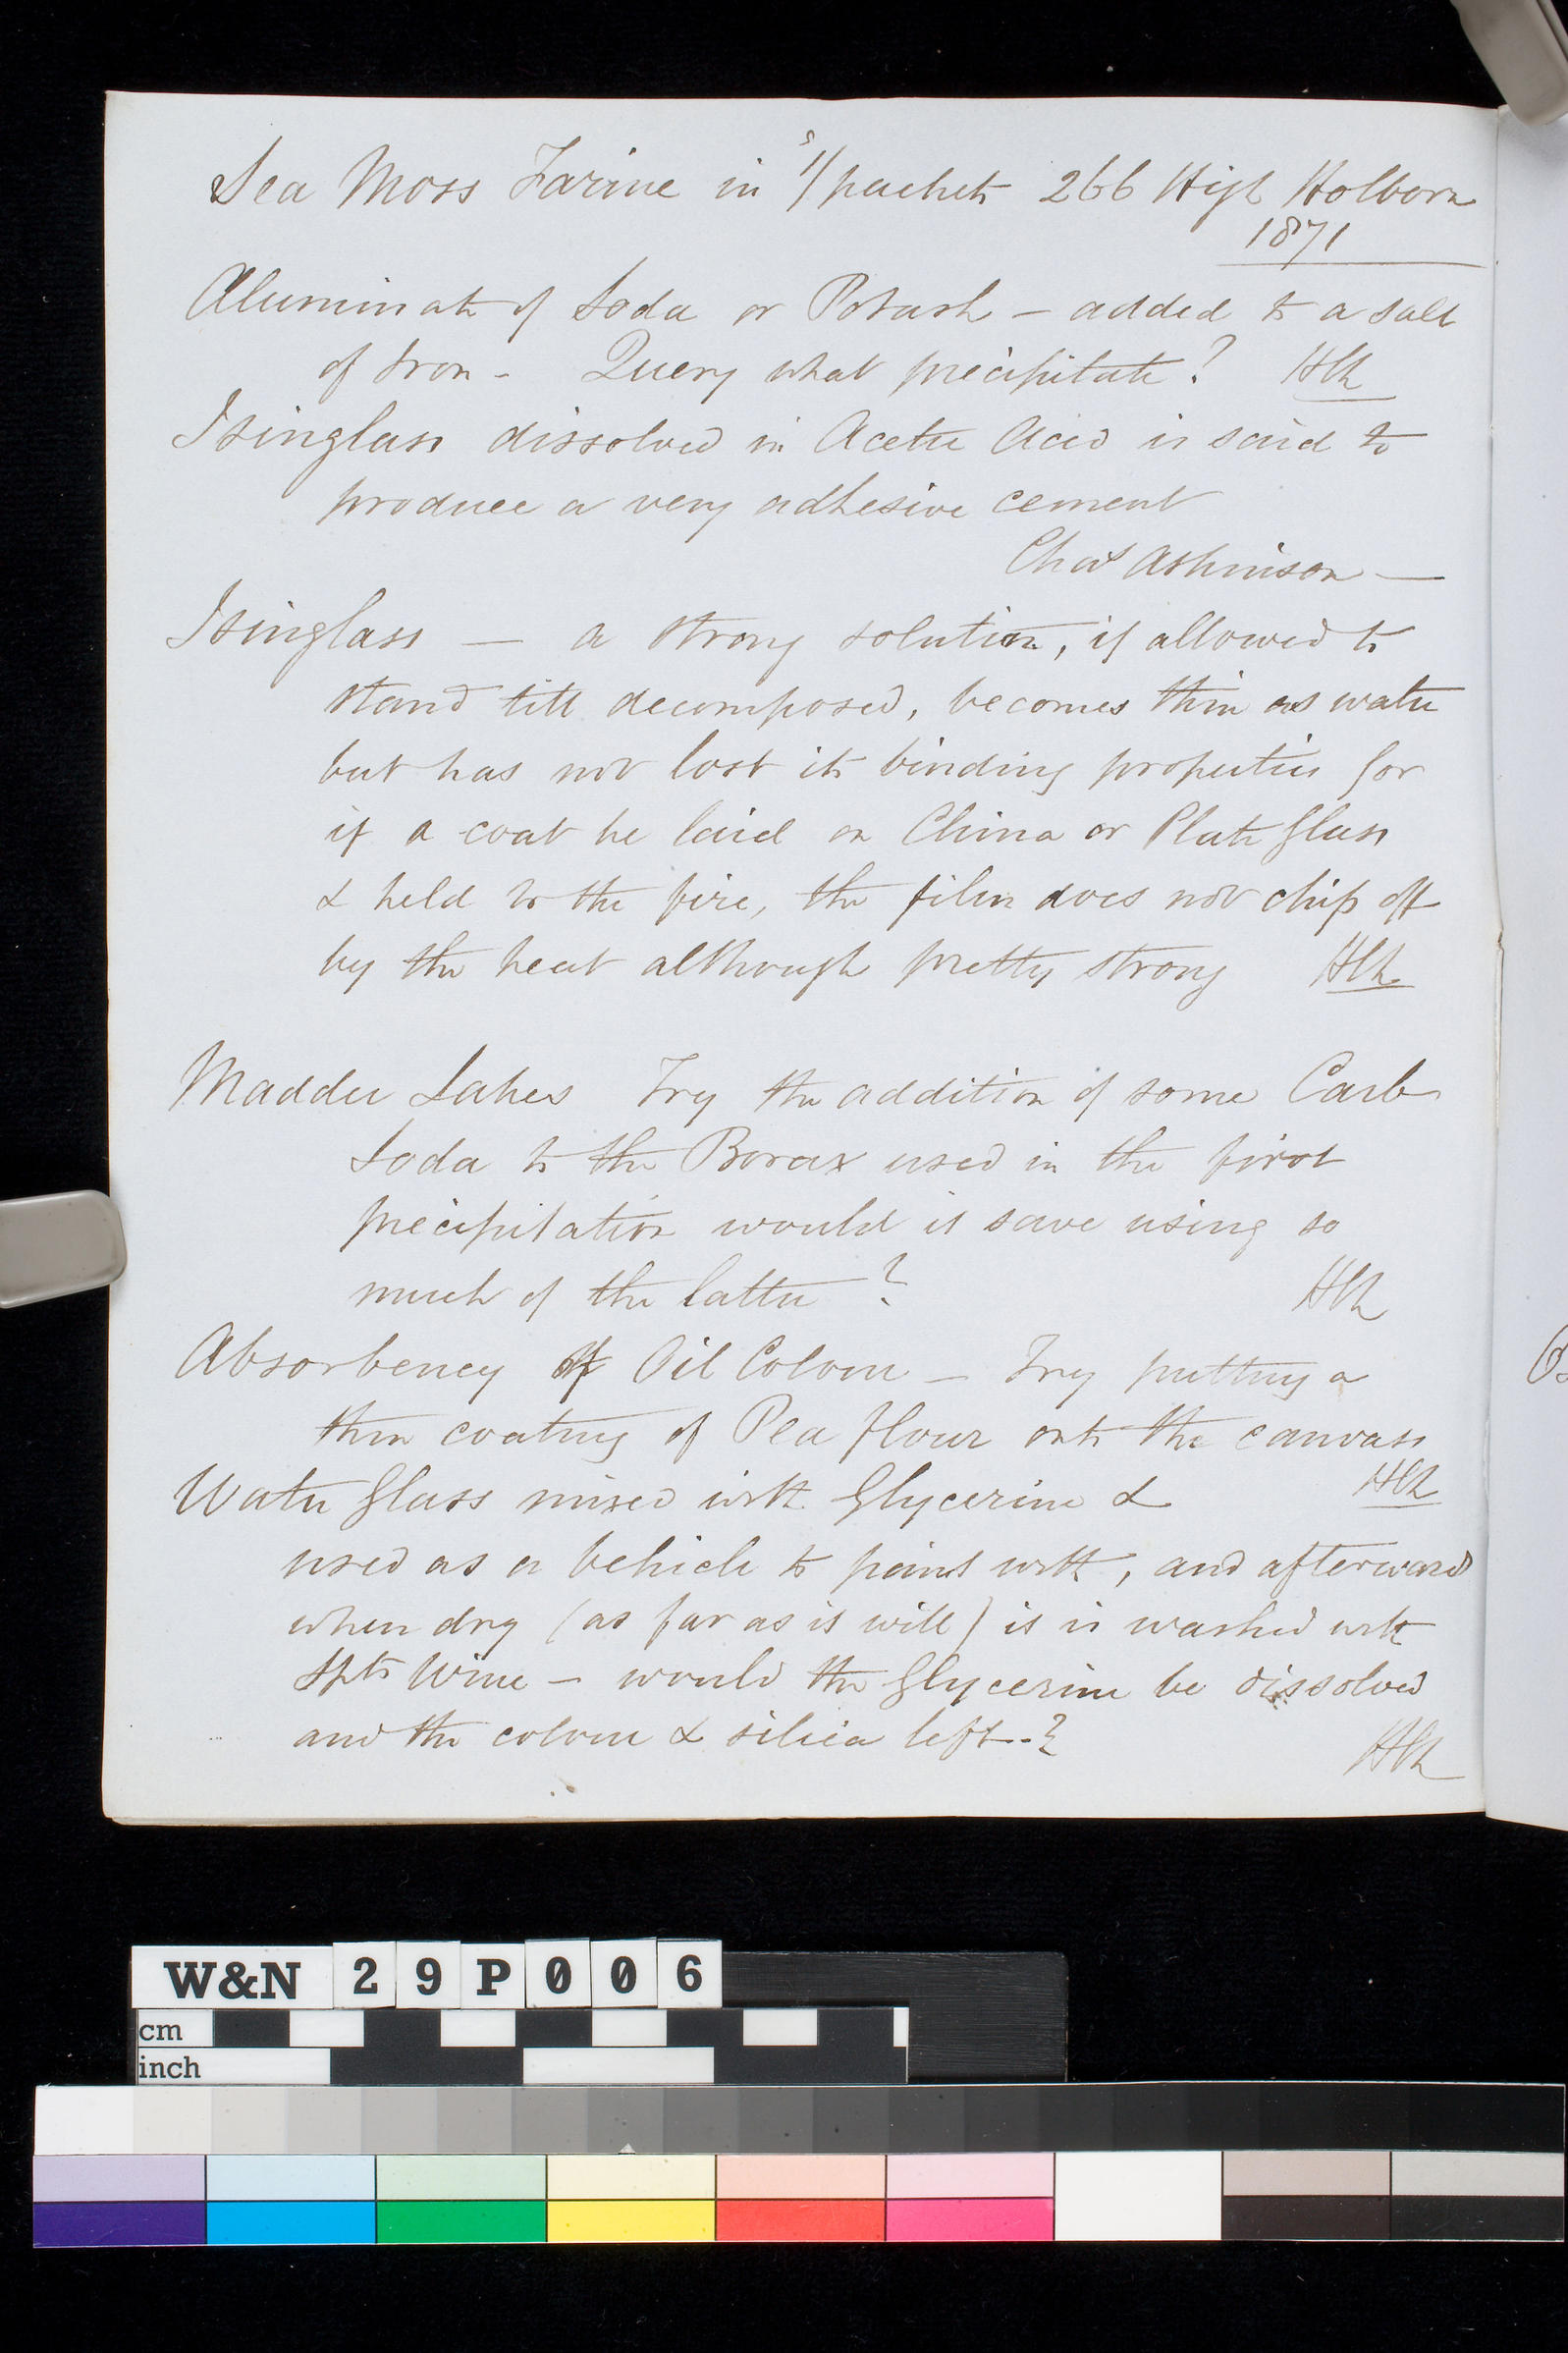 Sea Moss Farine in 1/s packets 266 High Holborn
1871
Aluminate of Soda or Potash – added to a salt
of Iron – Query what precipitate?
Isinglass dissolved in Acetic Acid is said to
produce a very adhesive cement
Chas Atkinson —
Isinglass — a strong solution, if allowed to
stand till decomposed, becomes thin as water
but has not lost its binding properties for
if a coat be laid on China or Plate Glass
& held to the fire, the film does not chip off
by the heat although pretty strong
Madder Lakes Try the addition of some Carb
Soda to the Borax used in the first
precipitation would it save using so
much of the latter?
Absorbency of Oil Colour – Try putting a
thin coating of Pea flour onto the canvass
Water Glass mixed with Glycerine &
used as a vehicle to paint with, and afterward
when dry (as far as it will) it is washed with
Spts Wine – would the Glycerine be dissolved
and the colour & silica left –?
W&N 29P006
cm
inch